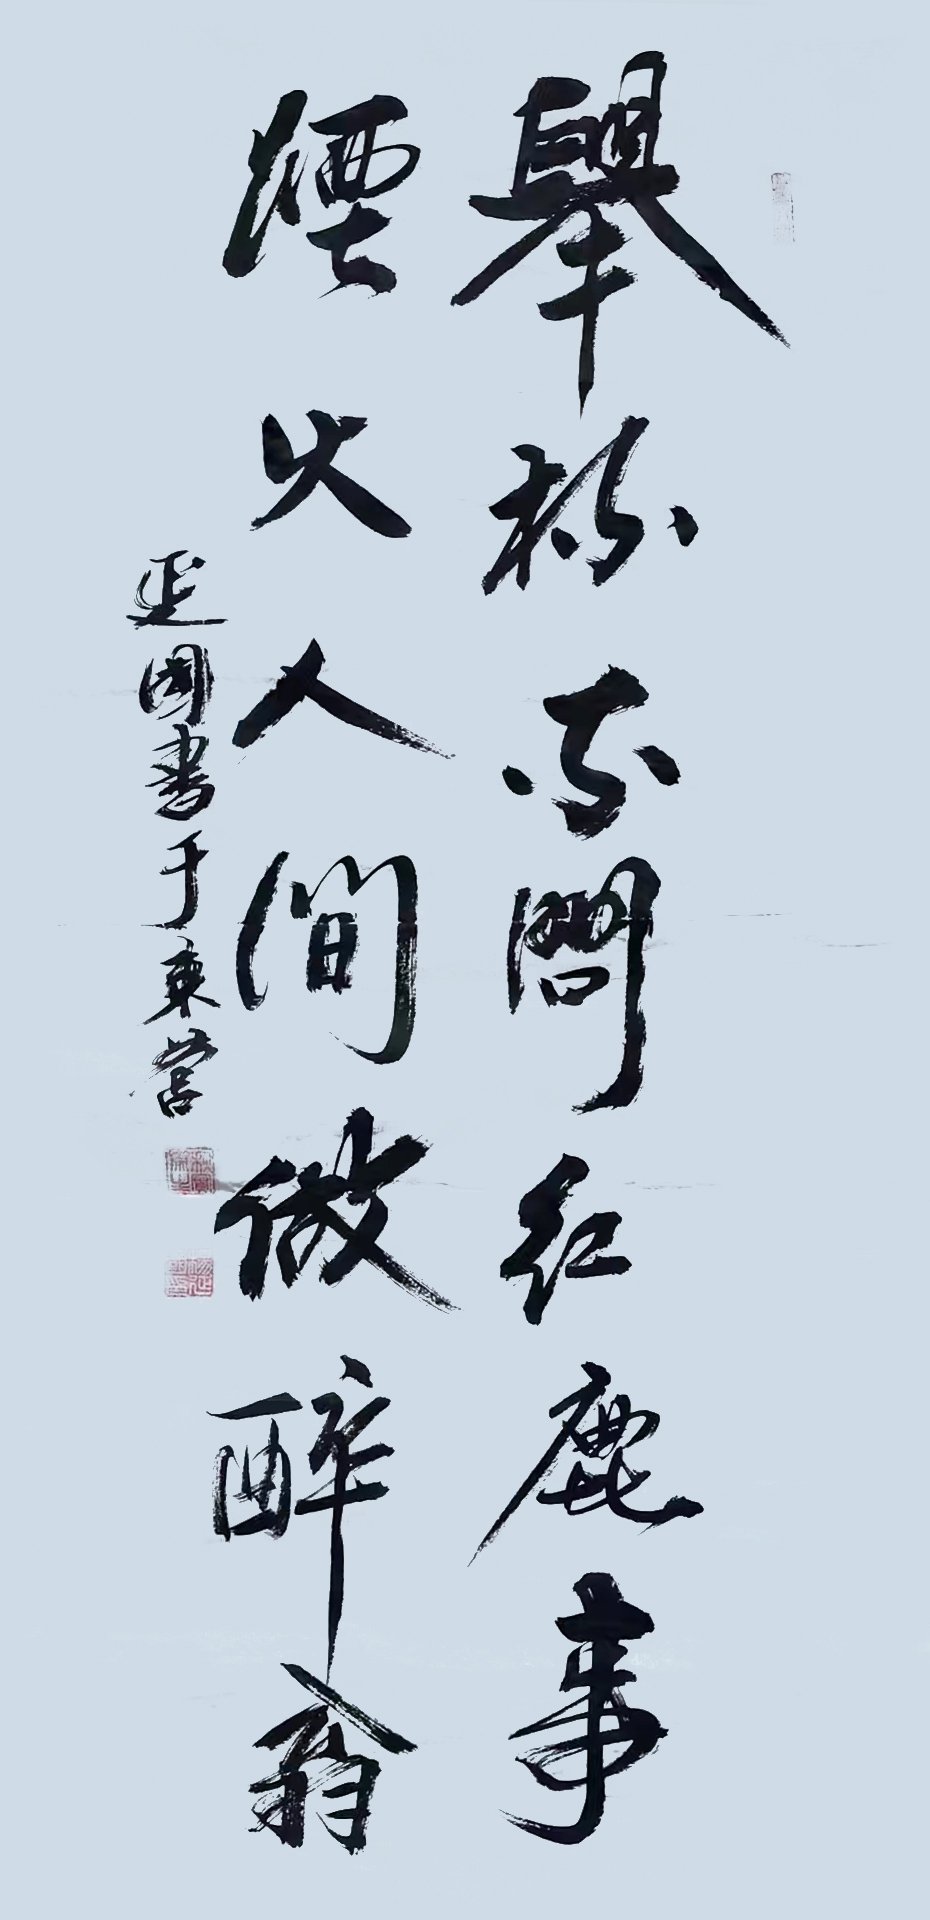 舉杯不問紅塵事
煙火人间做醉翁
延國書于東营